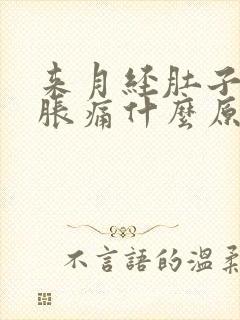 来月经肚子
胀痛什麼原
不言語的温柔